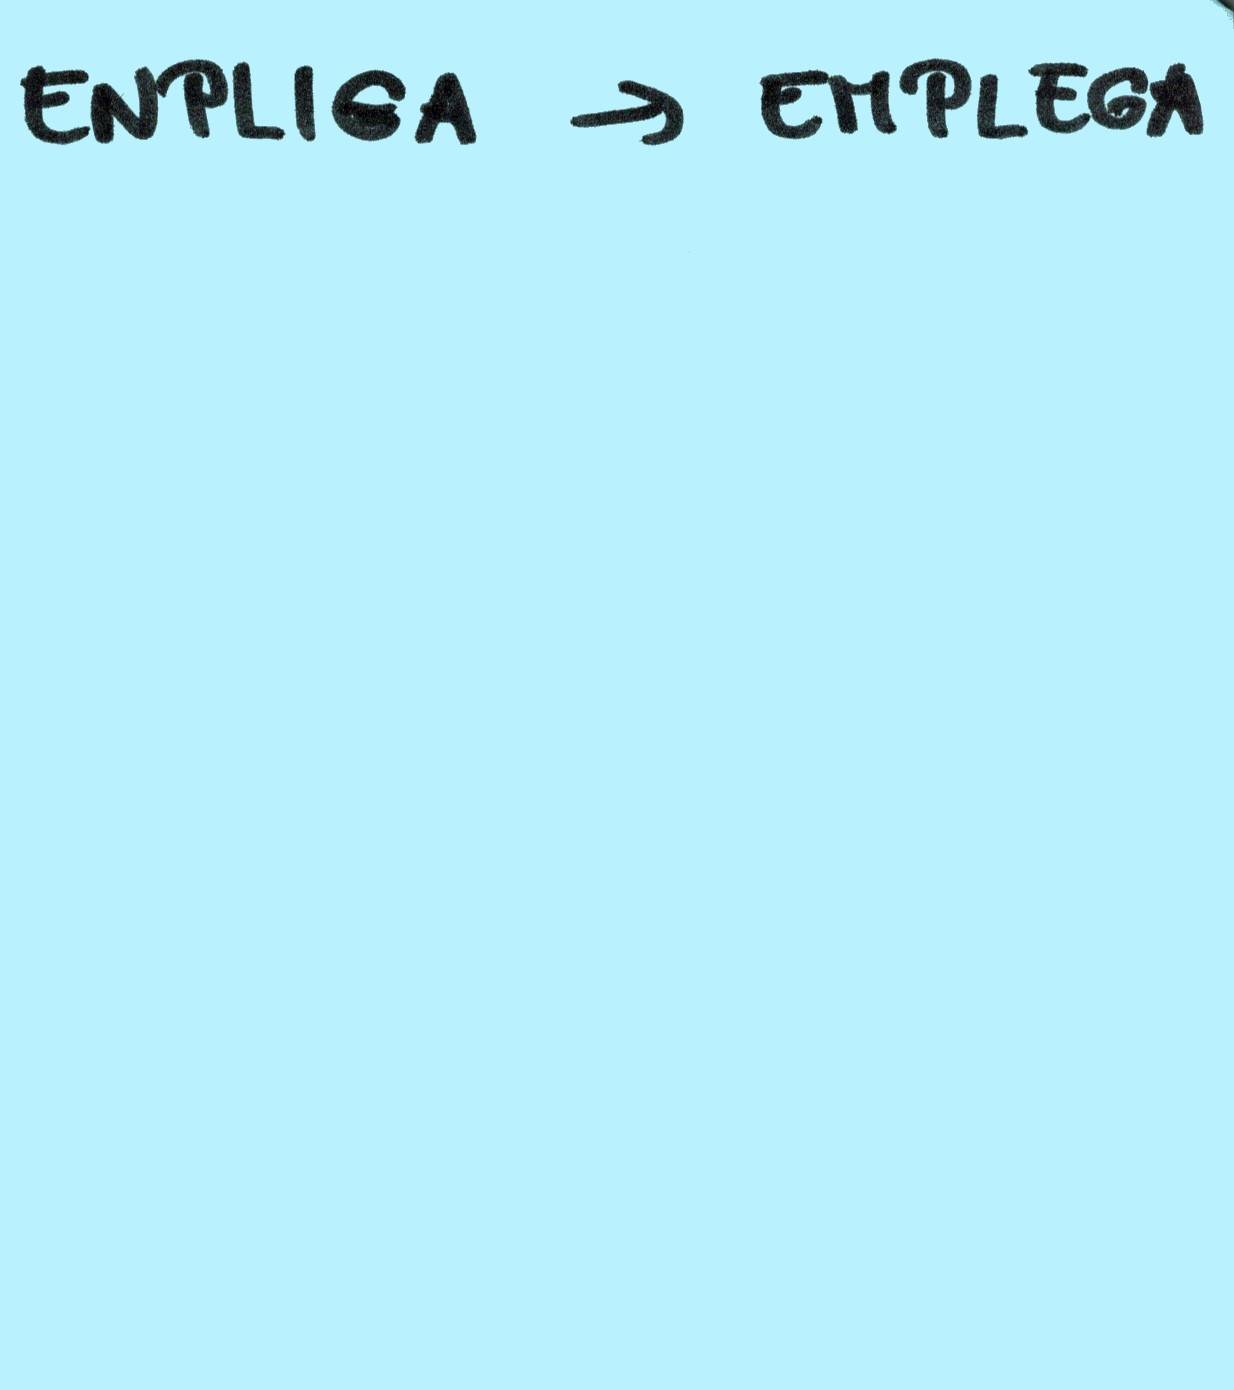 ENPLIGA → EMPLEGA